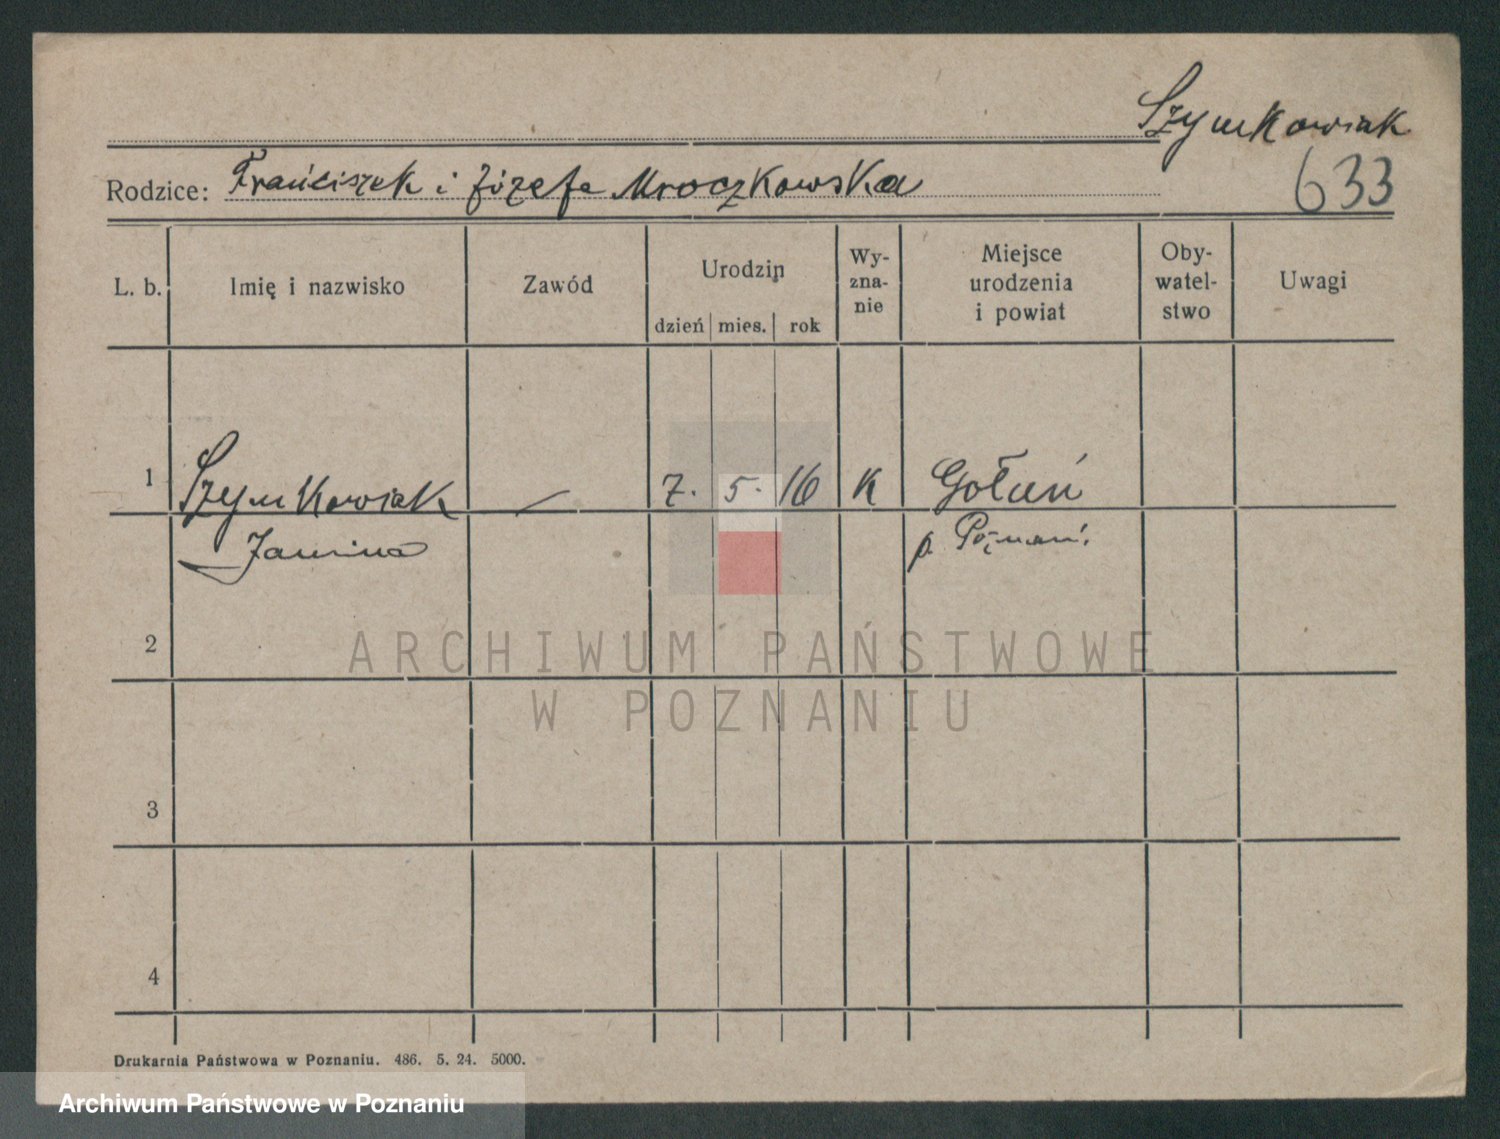 Szymkowiak
Rodzice: Franciszek i Józefa Mroczkowska
633
L. b. Imię i nazwisko Zawód Urodzin dzień mies. rok Wy-zna-nie Miejsce urodzenia i powiat Oby-watel-stwo Uwagi
1 Szymkowiak — 7. 5. 16 K Gołuń
Janina p. Poznań.
2
ARCHIWUM PAŃSTWOWE
W POZNANIU
3
4
Drukarnia Państwowa w Poznaniu. 486. 5. 24. 5000.
Archiwum Państwowe w Poznaniu